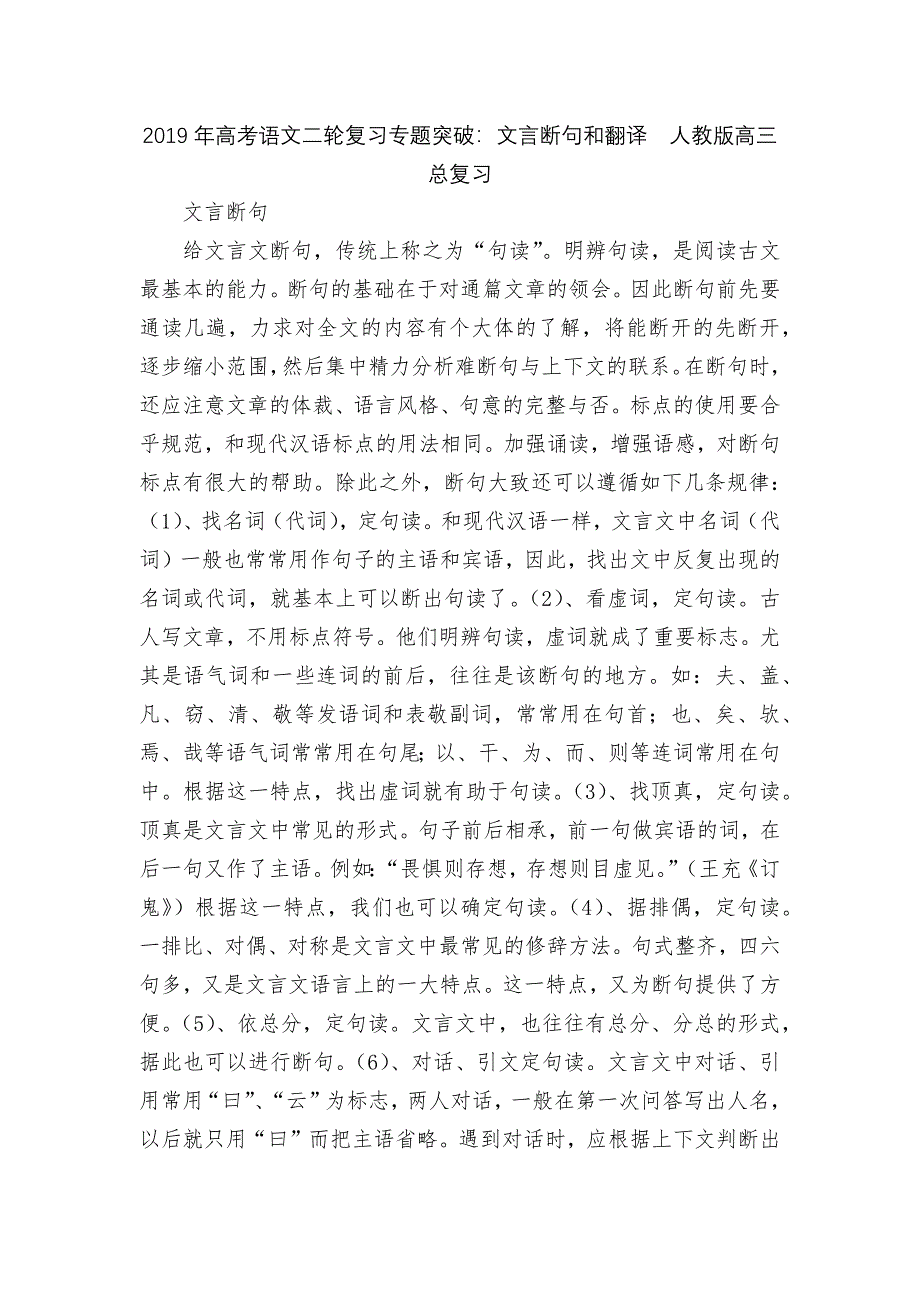 2019 年高考语文二轮复习专题突破：文言断句和翻译　人教版高三
总复习
文言断句
给文言文断句，传统上称之为“句读”。明辨句读，是阅读古文
最基本的能力。断句的基础在于对通篇文章的领会。因此断句前先要
通读几遍，力求对全文的内容有个大体的了解，将能断开的先断开，
逐步缩小范围，然后集中精力分析难断句与上下文的联系。在断句时，
还应注意文章的体裁、语言风格、句意的完整与否。标点的使用要合
乎规范，和现代汉语标点的用法相同。加强诵读，增强语感，对断句
标点有很大的帮助。除此之外，断句大致还可以遵循如下几条规律：
（1）、找名词（代词），定句读。和现代汉语一样，文言文中名词（代
词）一般也常常用作句子的主语和宾语，因此，找出文中反复出现的
名词或代词，就基本上可以断出句读了。（2）、看虚词，定句读。古
人写文章，不用标点符号。他们明辨句读，虚词就成了重要标志。尤
其是语气词和一些连词的前后，往往是该断句的地方。如：夫、盖、
凡、窃、清、敬等发语词和表敬副词，常常用在句首；也、矣、欤、
焉、哉等语气词常常用在句尾；以、干、为、而、则等连词常用在句
中。根据这一特点，找出虚词就有助于句读。（3）、找顶真，定句读。
顶真是文言文中常见的形式。句子前后相承，前一句做宾语的词，在
后一句又作了主语。例如：“畏惧则存想，存想则目虚见。”（王充《订
鬼》）根据这一特点，我们也可以确定句读。（4）、据排偶，定句读。
一排比、对偶、对称是文言文中最常见的修辞方法。句式整齐，四六
句多，又是文言文语言上的一大特点。这一特点，又为断句提供了方
便。（5）、依总分，定句读。文言文中，也往往有总分、分总的形式，
据此也可以进行断句。（6）、对话、引文定句读。文言文中对话、引
用常用“曰”、“云”为标志，两人对话，一般在第一次问答写出人名，
以后就只用“曰”而把主语省略。遇到对话时，应根据上下文判断出